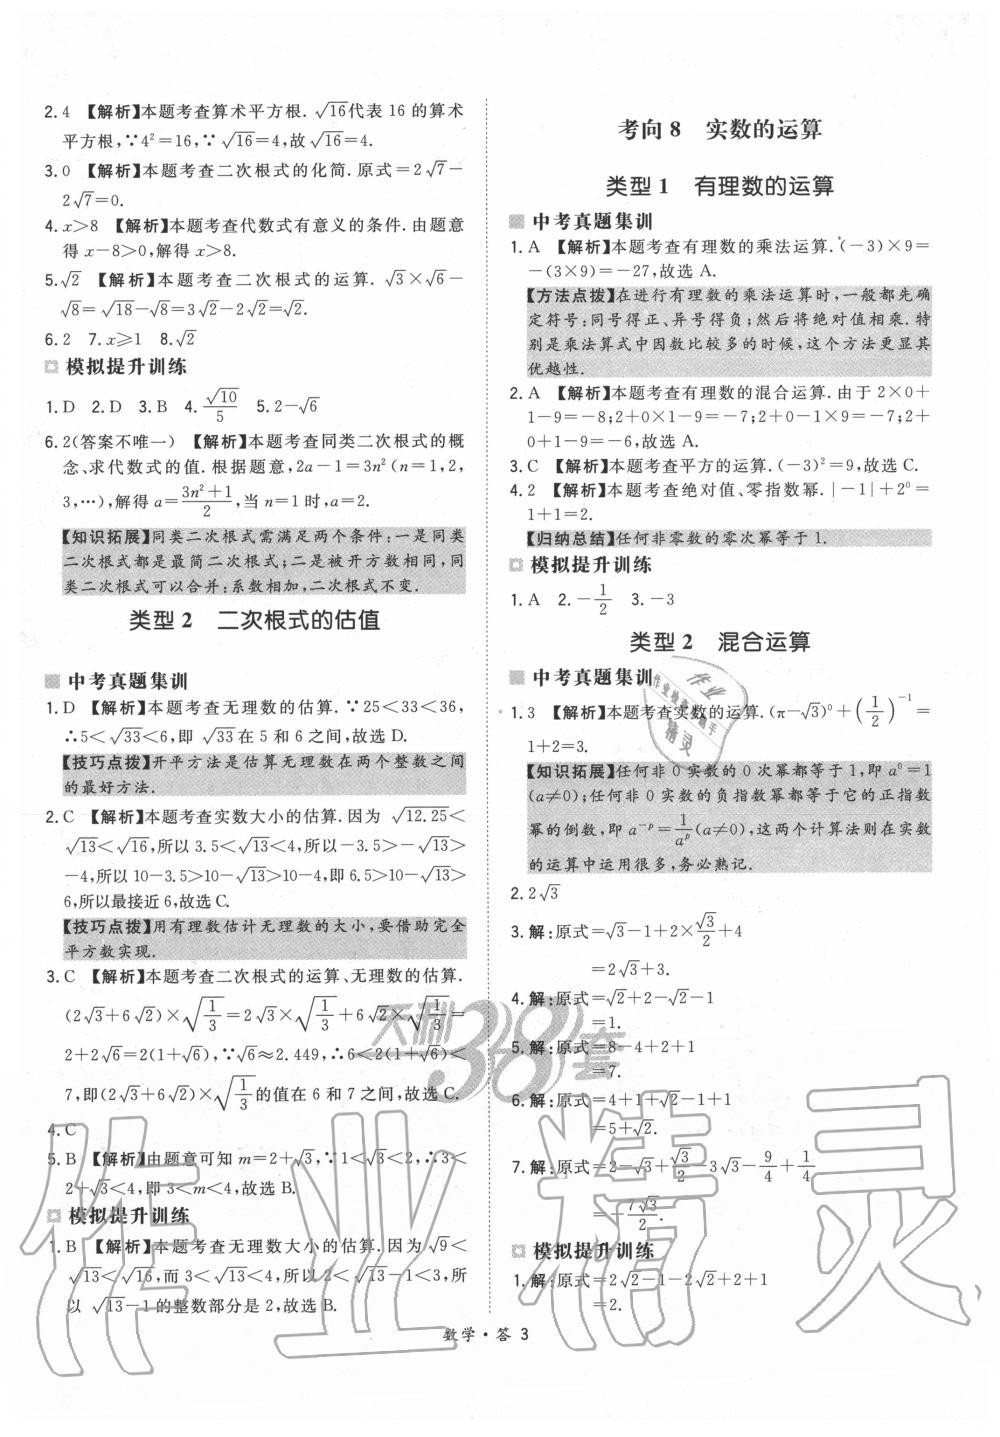 2. 4 【解析】本题考查算术平方根. √16代表 16 的算术
平方根,∵4²=16,∵√16=4,故√16=4.
3. 0 【解析】本题考查二次根式的化简. 原式=2√7−
2√7=0.
4. x>8 【解析】本题考查代数式有意义的条件. 由题意
得 x−8>0,解得 x>8.
5. √2 【解析】本题考查二次根式的运算. √3×√6−
√8=√18−√8=3√2−2√2=√2.
6. 2 7. x≥1 8. √2
模拟提升训练
1. D 2. D 3. B 4. √10/5 5. 2−√6
6. 2(答案不唯一) 【解析】本题考查同类二次根式的概
念、求代数式的值. 根据题意,2a−1=3n²(n=1,2,
3,…),解得 a=(3n²+1)/2,当 n=1 时,a=2.
【知识拓展】同类二次根式需满足两个条件:一是同类
二次根式都是最简二次根式;二是被开方数相同,同
类二次根式可以合并:系数相加,二次根式不变.
类型 2 二次根式的估值
中考真题集训
1. D 【解析】本题考查无理数的估算. ∵25<33<36,
∴5<√33<6,即 √33在 5 和 6 之间,故选 D.
【技巧点拨】开平方法是估算无理数在两个整数之间
的最好方法.
2. C 【解析】本题考查实数大小的估算. 因为 √12.25<
√13<√16,所以 3.5<√13<4,所以−3.5>−√13>
−4,所以 10−3.5>10−√13>10−4,即 6.5>10−√13>
6,所以最接近 6,故选C.
【技巧点拨】用有理数估计无理数的大小,要借助完全
平方数实现.
3. C 【解析】本题考查二次根式的运算、无理数的估算.
(2√3+6√2)×√(1/3)=2√3×√(1/3)+6√2×√(1/3)=
2+2√6=2(1+√6),∵√6≈2.449,∴6<2(1+√6)<
7,即(2√3+6√2)×√(1/3)的值在 6 和 7 之间,故选 C.
4. C
5. B 【解析】由题意可知 m=2+√3,∵1<√3<2,∴3<
2+√3<4,即 3<m<4,故选 B.
模拟提升训练
1. B 【解析】本题考查无理数大小的估算. 因为√9<
√13<√16,而 3<√13<4,所以 2<√13−1<3,所
以 √13−1 的整数部分是 2,故选 B.
考向 8 实数的运算
类型 1 有理数的运算
中考真题集训
1. A 【解析】本题考查有理数的乘法运算. (−3)×9=
−(3×9)=−27,故选 A.
【方法点拨】在进行有理数的乘法运算时,一般都先确
定符号:同号得正、异号得负;然后将绝对值相乘. 特
别是乘法算式中因数比较多的时候,这个方法更显其
优越性.
2. A 【解析】本题考查有理数的混合运算. 由于 2×0+
1−9=−8;2+0×1−9=−7;2+0−1×9=−7;2+
0+1−9=−6,故选 A.
3. C 【解析】本题考查平方的运算. (−3)²=9,故选 C.
4. 2 【解析】本题考查绝对值、零指数幂. |−1|+2⁰=
1+1=2.
【归纳总结】任何非零数的零次幂等于 1.
模拟提升训练
1. A 2. −1/2 3. −3
类型 2 混合运算
中考真题集训
1. 3 【解析】本题考查实数的运算. (π−√3)⁰+(1/2)⁻¹=
1+2=3.
【知识拓展】任何非 0 实数的 0 次幂都等于 1,即 a⁰=1
(a≠0);任何非 0 实数的负指数幂都等于它的正指数
幂的倒数,即 a⁻ᵖ=1/aᵖ(a≠0),这两个计算法则在实数
的运算中运用很多,务必熟记.
2. 2√3
3. 解:原式=√3−1+2×√3/2+4
=2√3+3.
4. 解:原式=√2+2−√2−1
=1.
5. 解:原式=8−4+2+1
=7.
6. 解:原式=4+1+√2−1+1
=5+√2.
7. 解:原式=2−√3+√3/2−3√3−9/4+1/4
=−7√3/2.
模拟提升训练
1. 解:原式=2√2−1−2√2+2+1
=2.
数学·答 3
天利38套
作业精灵
作业
作业检查小助手
精灵